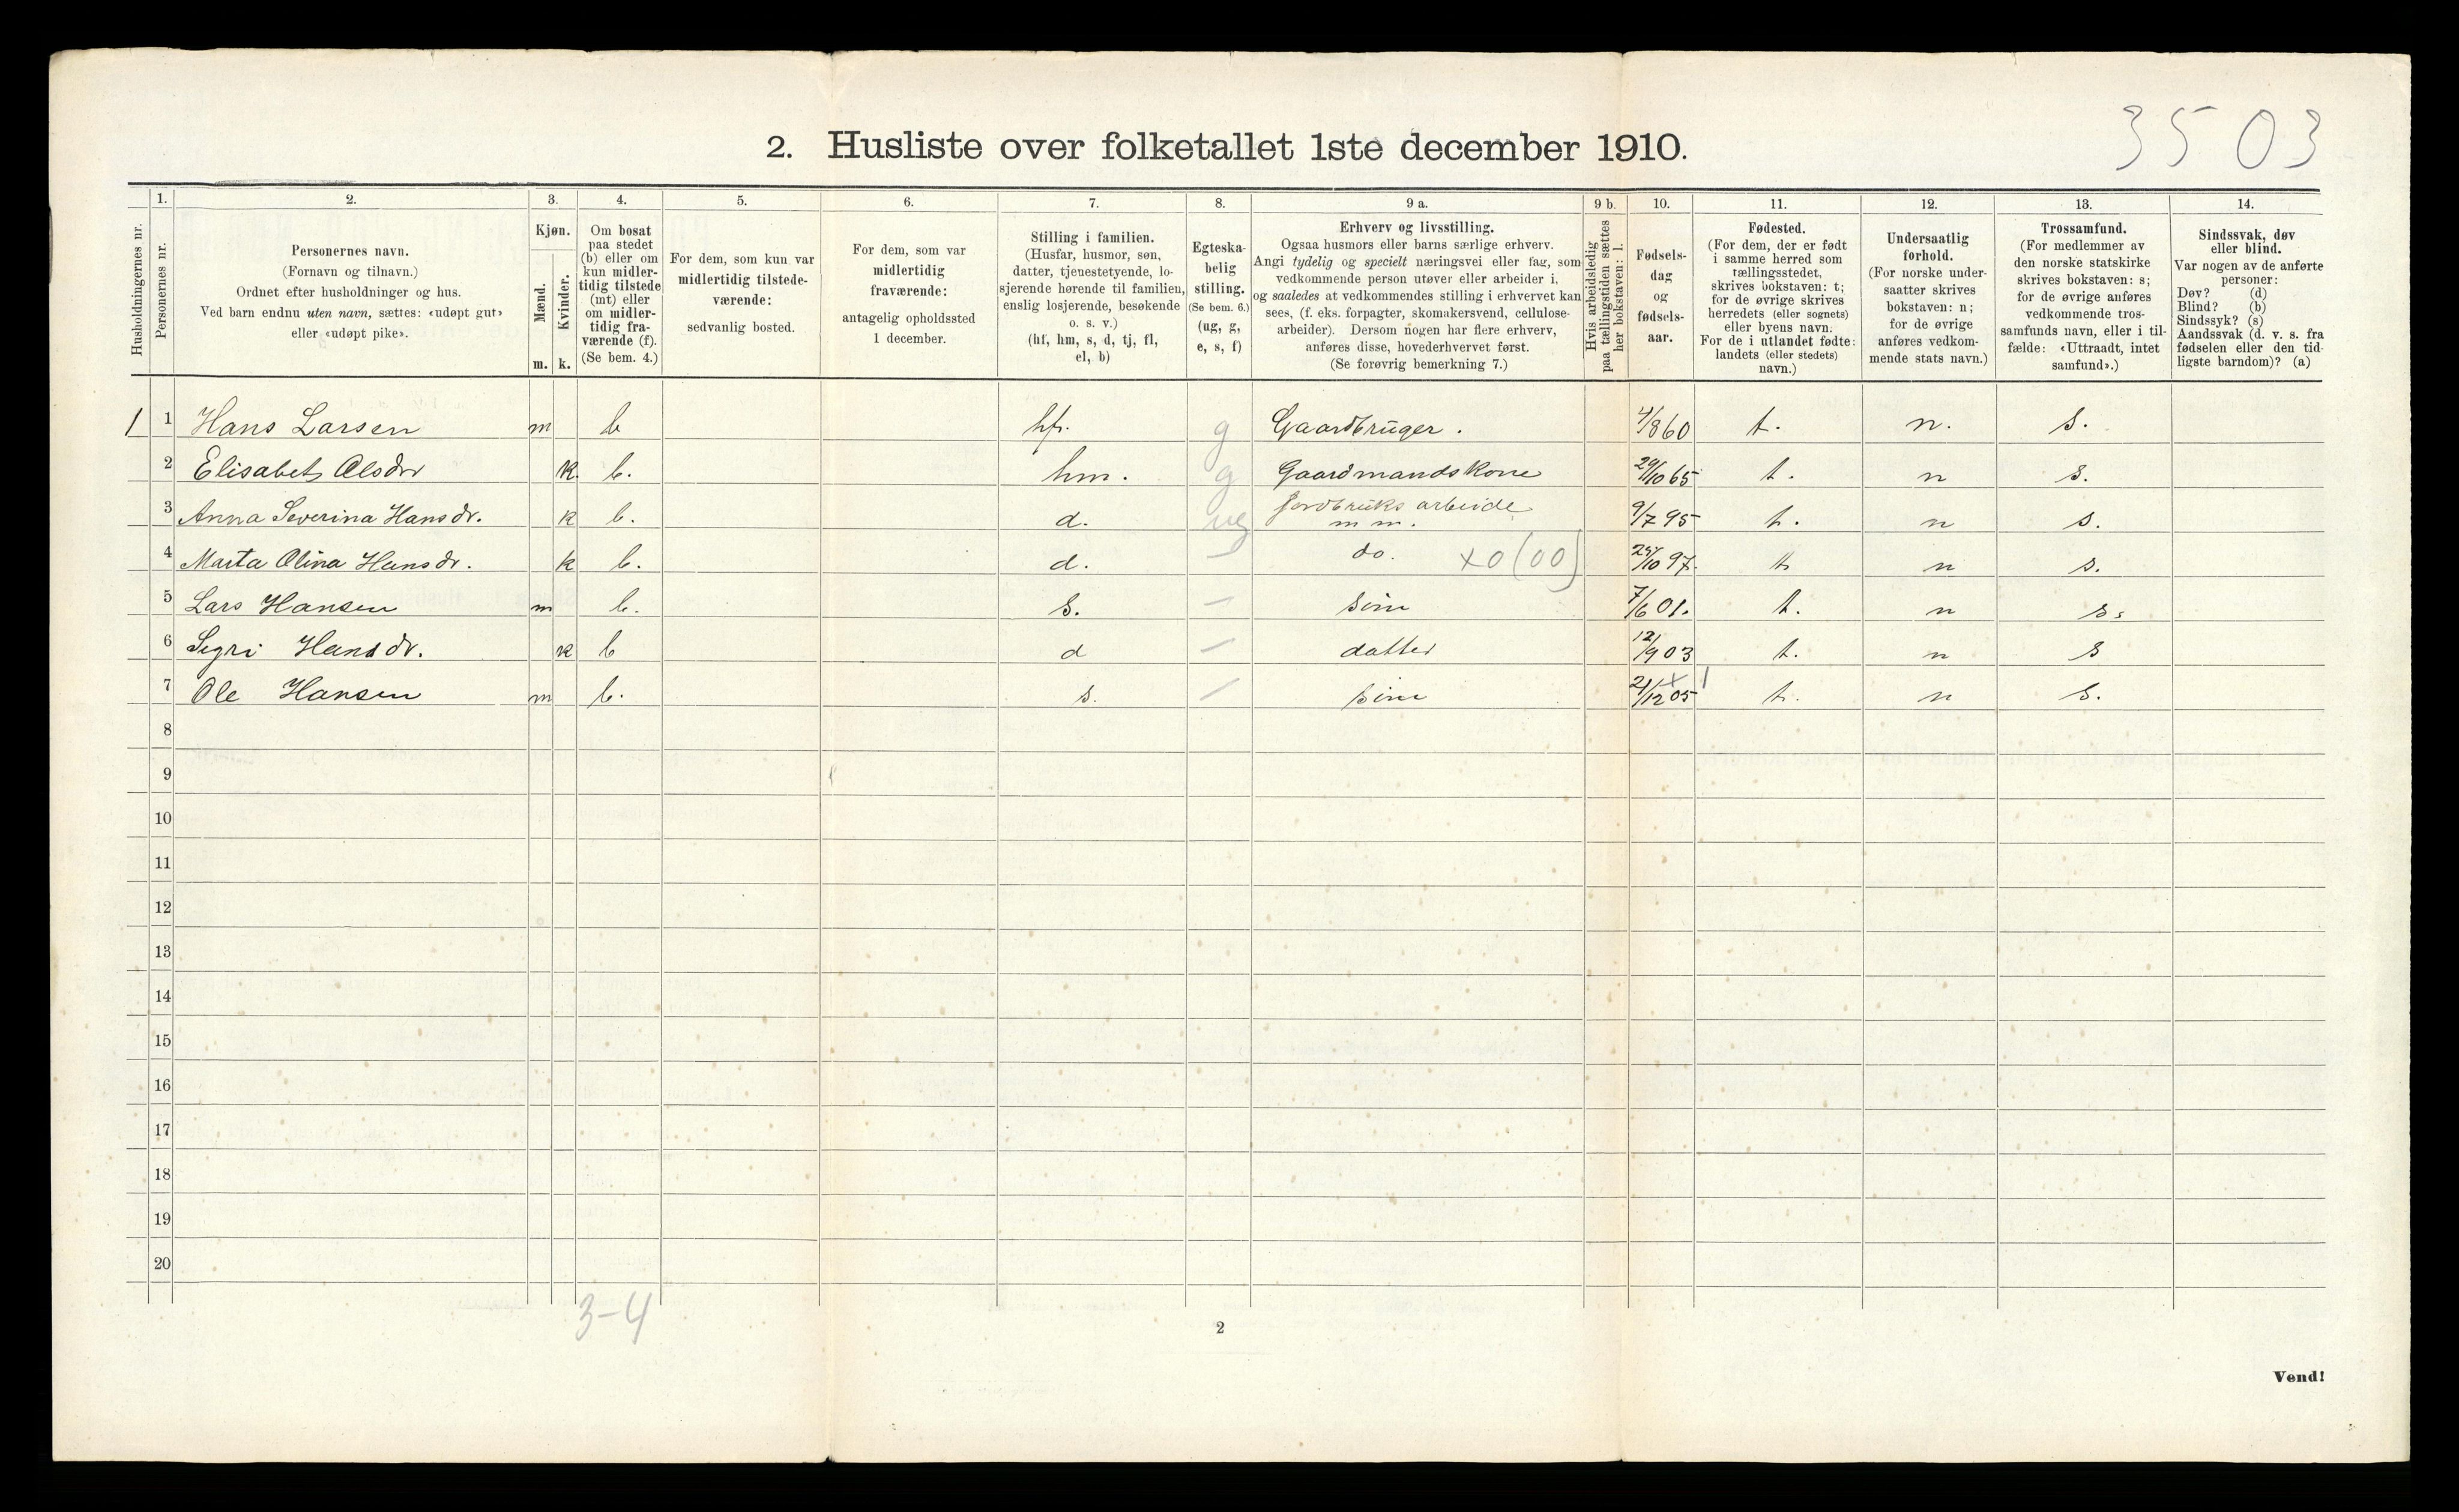 3503
2. Husliste over folketallet 1ste december 1910.
1. 2. 3. 4. 5. 6. 7. 8. 9 a. 9 b. 10. 11. 12. 13. 14.
Husholdningernes nr.
Personernes nr.
Personernes navn.
(Fornavn og tilnavn.)
Ordnet efter husholdninger og hus.
Ved barn endnu uten navn, sættes: «udøpt gut»
eller «udøpt pike».
Kjøn.
Mænd.
Kvinder.
m. k.
Om bosat
paa stedet
(b) eller om
kun midler-
tidig tilstede
(mt) eller
om midler-
tidig fra-
værende (f).
(Se bem. 4.)
For dem, som kun var
midlertidig tilstede-
værende:
sedvanlig bosted.
For dem, som var
midlertidig
fraværende:
antagelig opholdssted
1 december.
Stilling i familien.
(Husfar, husmor, søn,
datter, tjenestetyende, lo-
sjerende hørende til familien,
enslig losjerende, besøkende
o. s. v.)
(hf, hm, s, d, tj, fl,
el, b)
Egteska-
belig
stilling.
(Se bem. 6.)
(ug, g,
e, s, f)
Erhverv og livsstilling.
Ogsaa husmors eller barns særlige erhverv.
Angi tydelig og specielt næringsvei eller fag, som
vedkommende person utøver eller arbeider i,
og saaledes at vedkommendes stilling i erhvervet kan
sees, (f. eks. forpagter, skomakersvend, cellulose-
arbeider). Dersom nogen har flere erhverv,
anføres disse, hovederhvervet først.
(Se forøvrig bemerkning 7.)
Hvis arbeidsledig
paa tællingstiden sættes
her bokstaven: l.
Fødsels-
dag
og
fødsels-
aar.
Fødested.
(For dem, der er født
i samme herred som
tællingsstedet,
skrives bokstaven: t;
for de øvrige skrives
herredets (eller sognets)
eller byens navn.
For de i utlandet fødte:
landets (eller stedets)
navn.)
Undersaatlig
forhold.
(For norske under-
saatter skrives
bokstaven: n;
for de øvrige
anføres vedkom-
mende stats navn.)
Trossamfund.
(For medlemmer av
den norske statskirke
skrives bokstaven: s;
for de øvrige anføres
vedkommende tros-
samfunds navn, eller i til-
fælde: «Uttraadt, intet
samfund».)
Sindssvak, døv
eller blind.
Var nogen av de anførte
personer:
Døv? (d)
Blind? (b)
Sindssyk? (s)
Aandssvak (d. v. s. fra
fødselen eller den tid-
ligste barndom)? (a)
1 1 Hans Larsen m b hf. g Gaardbrüger. 4/8 60 t. n. s.
2 Elisabet Olsdr k. b. hm. g Gaardmandskone 29/10 65 t. n s.
3 Anna Severina Hansdr. k b. d. ug Jordbrüks arbeide m m. 9/7 95 t. n s.
4 Marta Olina Hansdr. k b. d. — do. x0(00) 25/10 97. t n s.
5 Lars Hansen m b. s. — sön 7/6 01. t. n s.
6 Segri Hansdr. k b d — datter 12/9 03 t. n s
7 Ole Hansen m b. s. — sön 21/12 05 t. n s.
8
9
10
11
12
13
14
15
16
17
18
19
20
3-4
2
Vend!